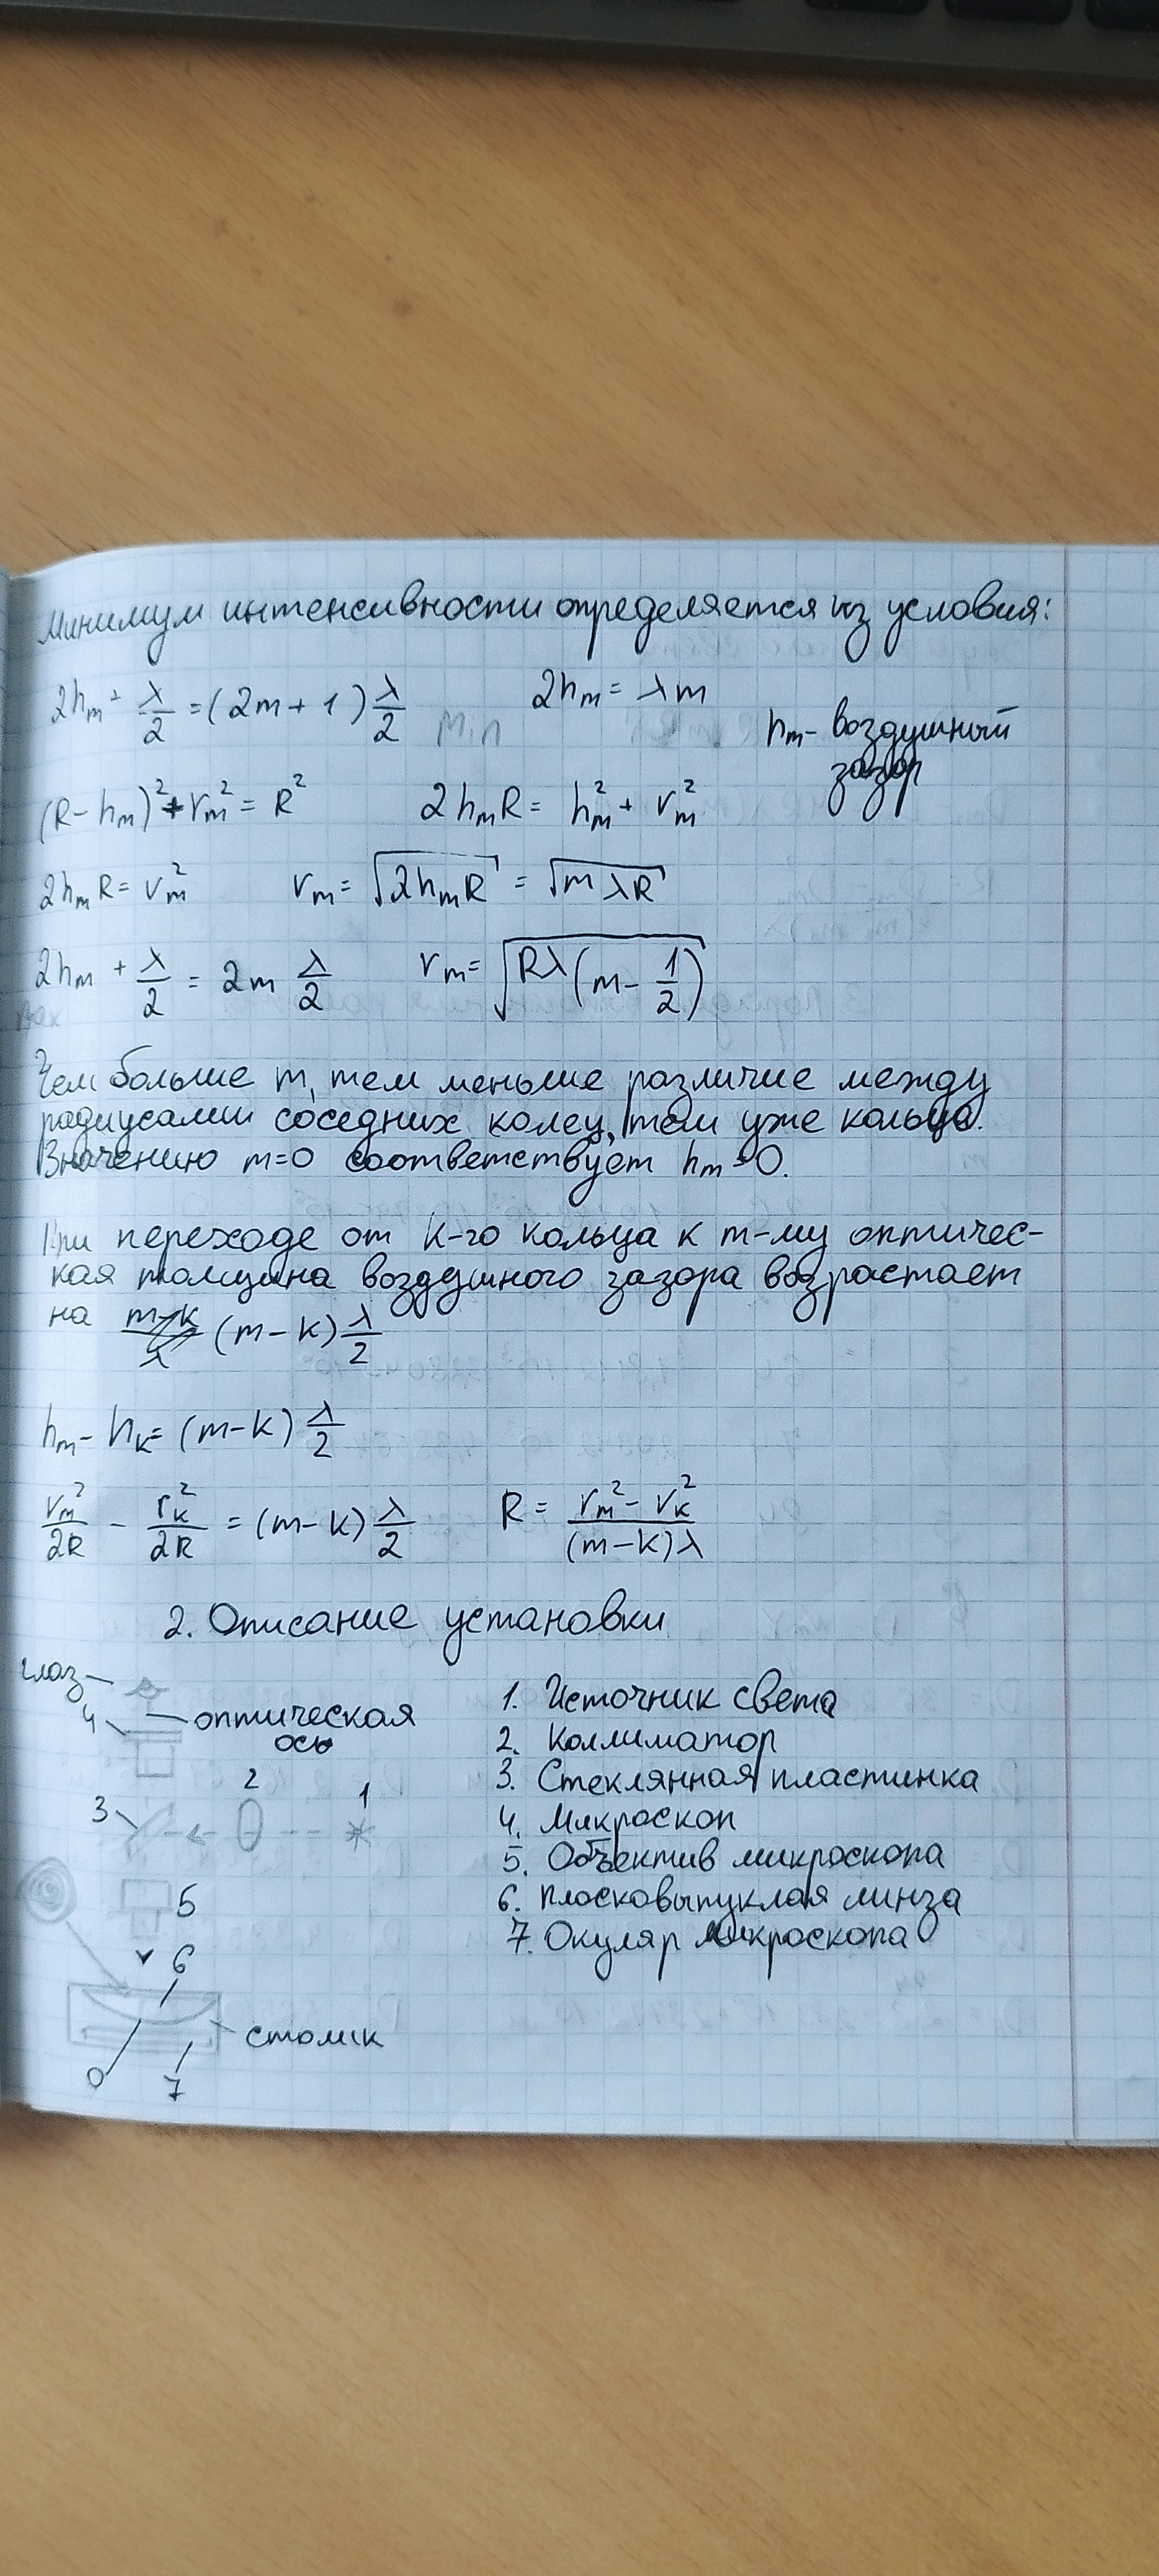 Минимум интенсивности определяется из условия:
2hₘ + λ/2 = (2m + 1) λ/2    2hₘ = λm
min    hₘ - воздушный
зазор
(R - hₘ)² + rₘ² = R²    2hₘR = hₘ² + rₘ²
2hₘR = rₘ²    rₘ = √(2hₘR) = √(mλR)
2hₘ + λ/2 = 2m λ/2    rₘ = √(Rλ(m - 1/2))
max
Чем больше m, тем меньше различие между
радиусами соседних колец, тем уже кольца.
Значению m=0 соответствует hₘ=0.
При переходе от k-го кольца к m-му оптичес-
кая толщина воздушного зазора возрастает
на (m - k) λ/2
hₘ - hₖ = (m - k) λ/2
rₘ²/2R - rₖ²/2R = (m - k) λ/2    R = (rₘ² - rₖ²)/((m - k)λ)
2. Описание установки
глаз
4
оптическая
ось
2
1
3
5
6
столик
0
7
1. Источник света
2. Коллиматор
3. Стеклянная пластинка
4. Микроскоп
5. Объектив микроскопа
6. Плосковыпуклая линза
7. Окуляр микроскопа